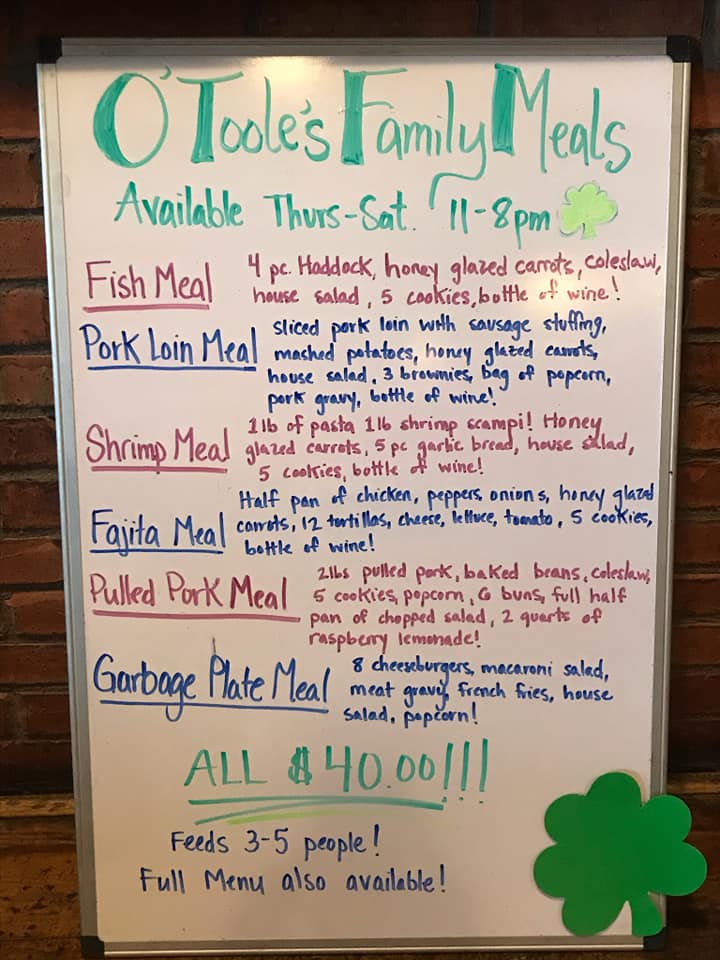 O'Toole's Family Meals
Available Thurs-Sat. 11-8pm
Fish Meal
4 pc. Haddock, honey glazed carrots, coleslaw,
house salad, 5 cookies, bottle of wine!
Pork Loin Meal
Sliced pork loin with sausage stuffing,
mashed potatoes, honey glazed carrots,
house salad, 3 brownies, bag of popcorn,
pork gravy, bottle of wine!
Shrimp Meal
1lb of pasta 1lb shrimp scampi! Honey
glazed carrots, 5 pc garlic bread, house salad,
5 cookies, bottle of wine!
Fajita Meal
Half pan of chicken, peppers, onions, honey glazed
carrots, 12 tortillas, cheese, lettuce, tomato, 5 cookies,
bottle of wine!
Pulled Pork Meal
2lbs pulled pork, baked beans, coleslaw,
5 cookies, popcorn, 6 buns, full half
pan of chopped salad, 2 quarts of
raspberry lemonade!
Garbage Plate Meal
8 cheeseburgers, macaroni salad,
meat gravy, french fries, house
salad, popcorn!
ALL $40.00!!!
Feeds 3-5 people!
Full Menu also available!